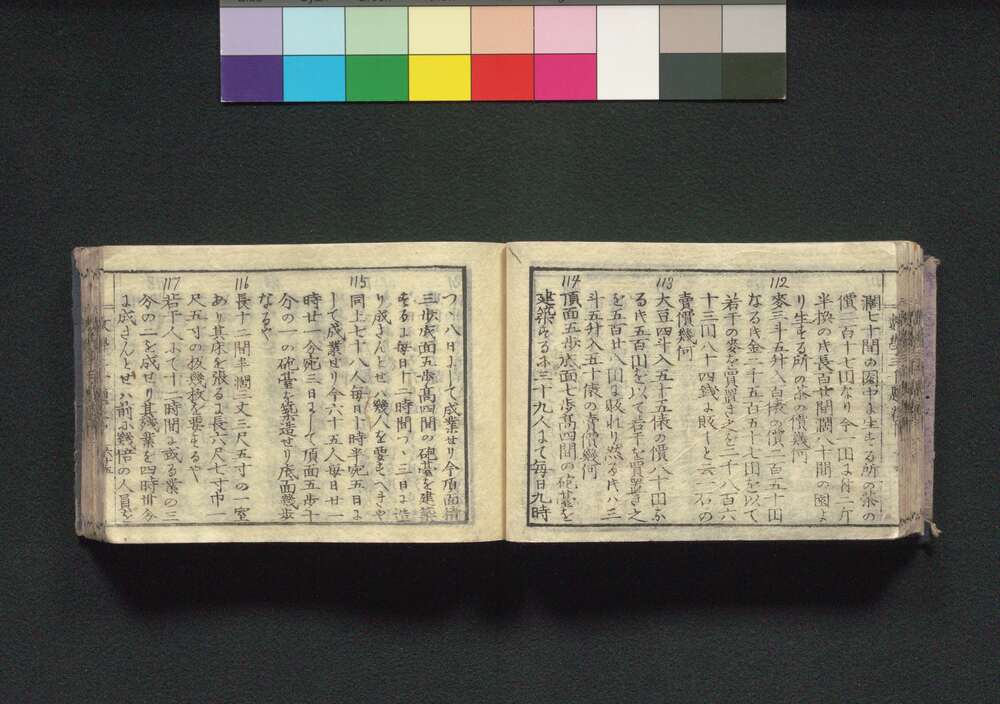 濶七十間の園中に生ずる所の茶の
價二百十七円なり今一円に付二斤
半換の民長百廿間濶八十間の園よ
り生ずる所の茶の價幾何
112
麥三斗五升八百俵の價二百五十円
なる氏金二千五百五十七円を以て
若干の麥を買置き之を三千八百六
十三円八十四錢に販し云一石の
賣價幾何
113
大豆四斗入五十五俵の價八十円な
る氏五百円を以て若干を買置き之
を五百廿八円に販れり然る氏八三
斗五升入五十俵の賣價幾何
114
頂面五步底面七步高四間の砲墓を
建築するに三十九人にて每日九時
づゝ八日にして成業せり今頂面積
三步底面五步高四間の砲臺を建築
するに每日十二時間づゝ三日に造
り成さんとせバ幾人を要すべきや
115
同上七十八人每日十時半宛五日に
して成業せり今六十五人每日廿一
時廿一分宛三日にして頂面五步十
分の一の砲臺を築造せり底面幾步
なるや
116
長十二間半濶三丈三尺五寸の一室
あり其床を張るに長六尺七寸巾一
尺五寸の板幾枚を要するや
117
若干人にて十二時間に或る業の三
分の二を成せり其殘業を四時廿分
に成さんとせバ前に幾倍の人員を